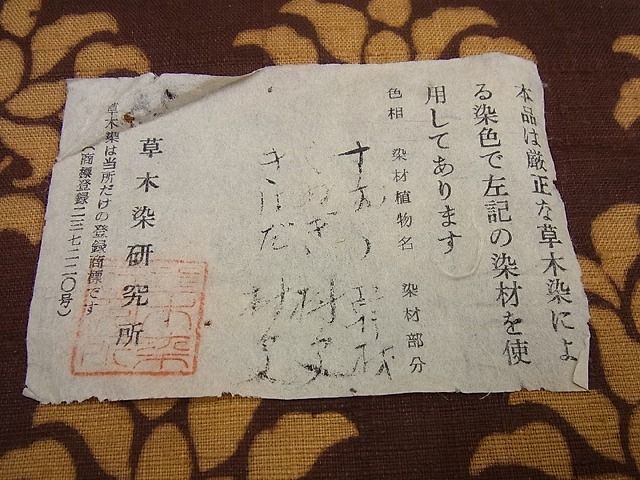 本品は厳正な草木染によ
る染色で左記の染材を使
用してあります
色相 染材植物名 染材部分
すおう 幹材
きはだ
草木染研究所
草木染は当所だけの登録商標です
(商標登録二三七二二〇号)